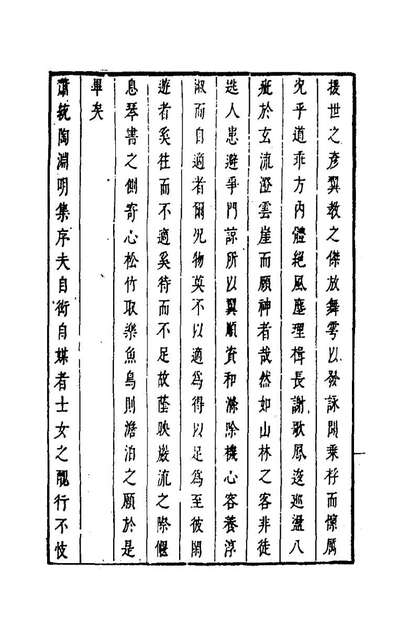 援世之彦翼教之傑放舞雩以發詠聞乘桴而懍厲
况乎道乖方內體絕風塵理楫長謝歌鳳逡巡盪八
疵於玄流澄雲崖而頤神者哉然如山林之客非徒
逃人患避爭門諒所以翼順資和滌除機心容養淳
淑而自適者爾况物莫不以適為得以足為至彼閑
遊者奚往而不適奚待而不足故蔭映巖流之際偃
息琴書之側寄心松竹取樂魚鳥則澹泊之願於是
畢矣
蕭統陶淵明集序夫自衒自媒者士女之醜行不忮